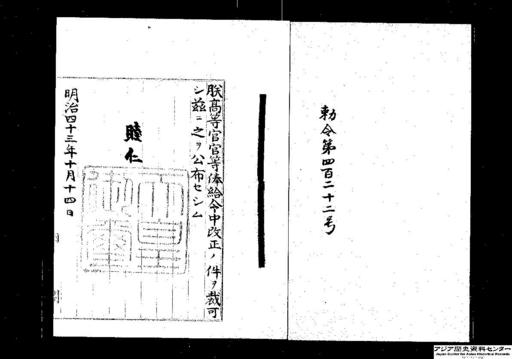 勅令第四百二十二号
朕高等官官等俸給令中改正ノ件ヲ裁可
シ茲ニ之ヲ公布セシム
睦仁
明治四十三年十月十四日
アジア歴史資料センター
Japan Center for Asian Historical Records